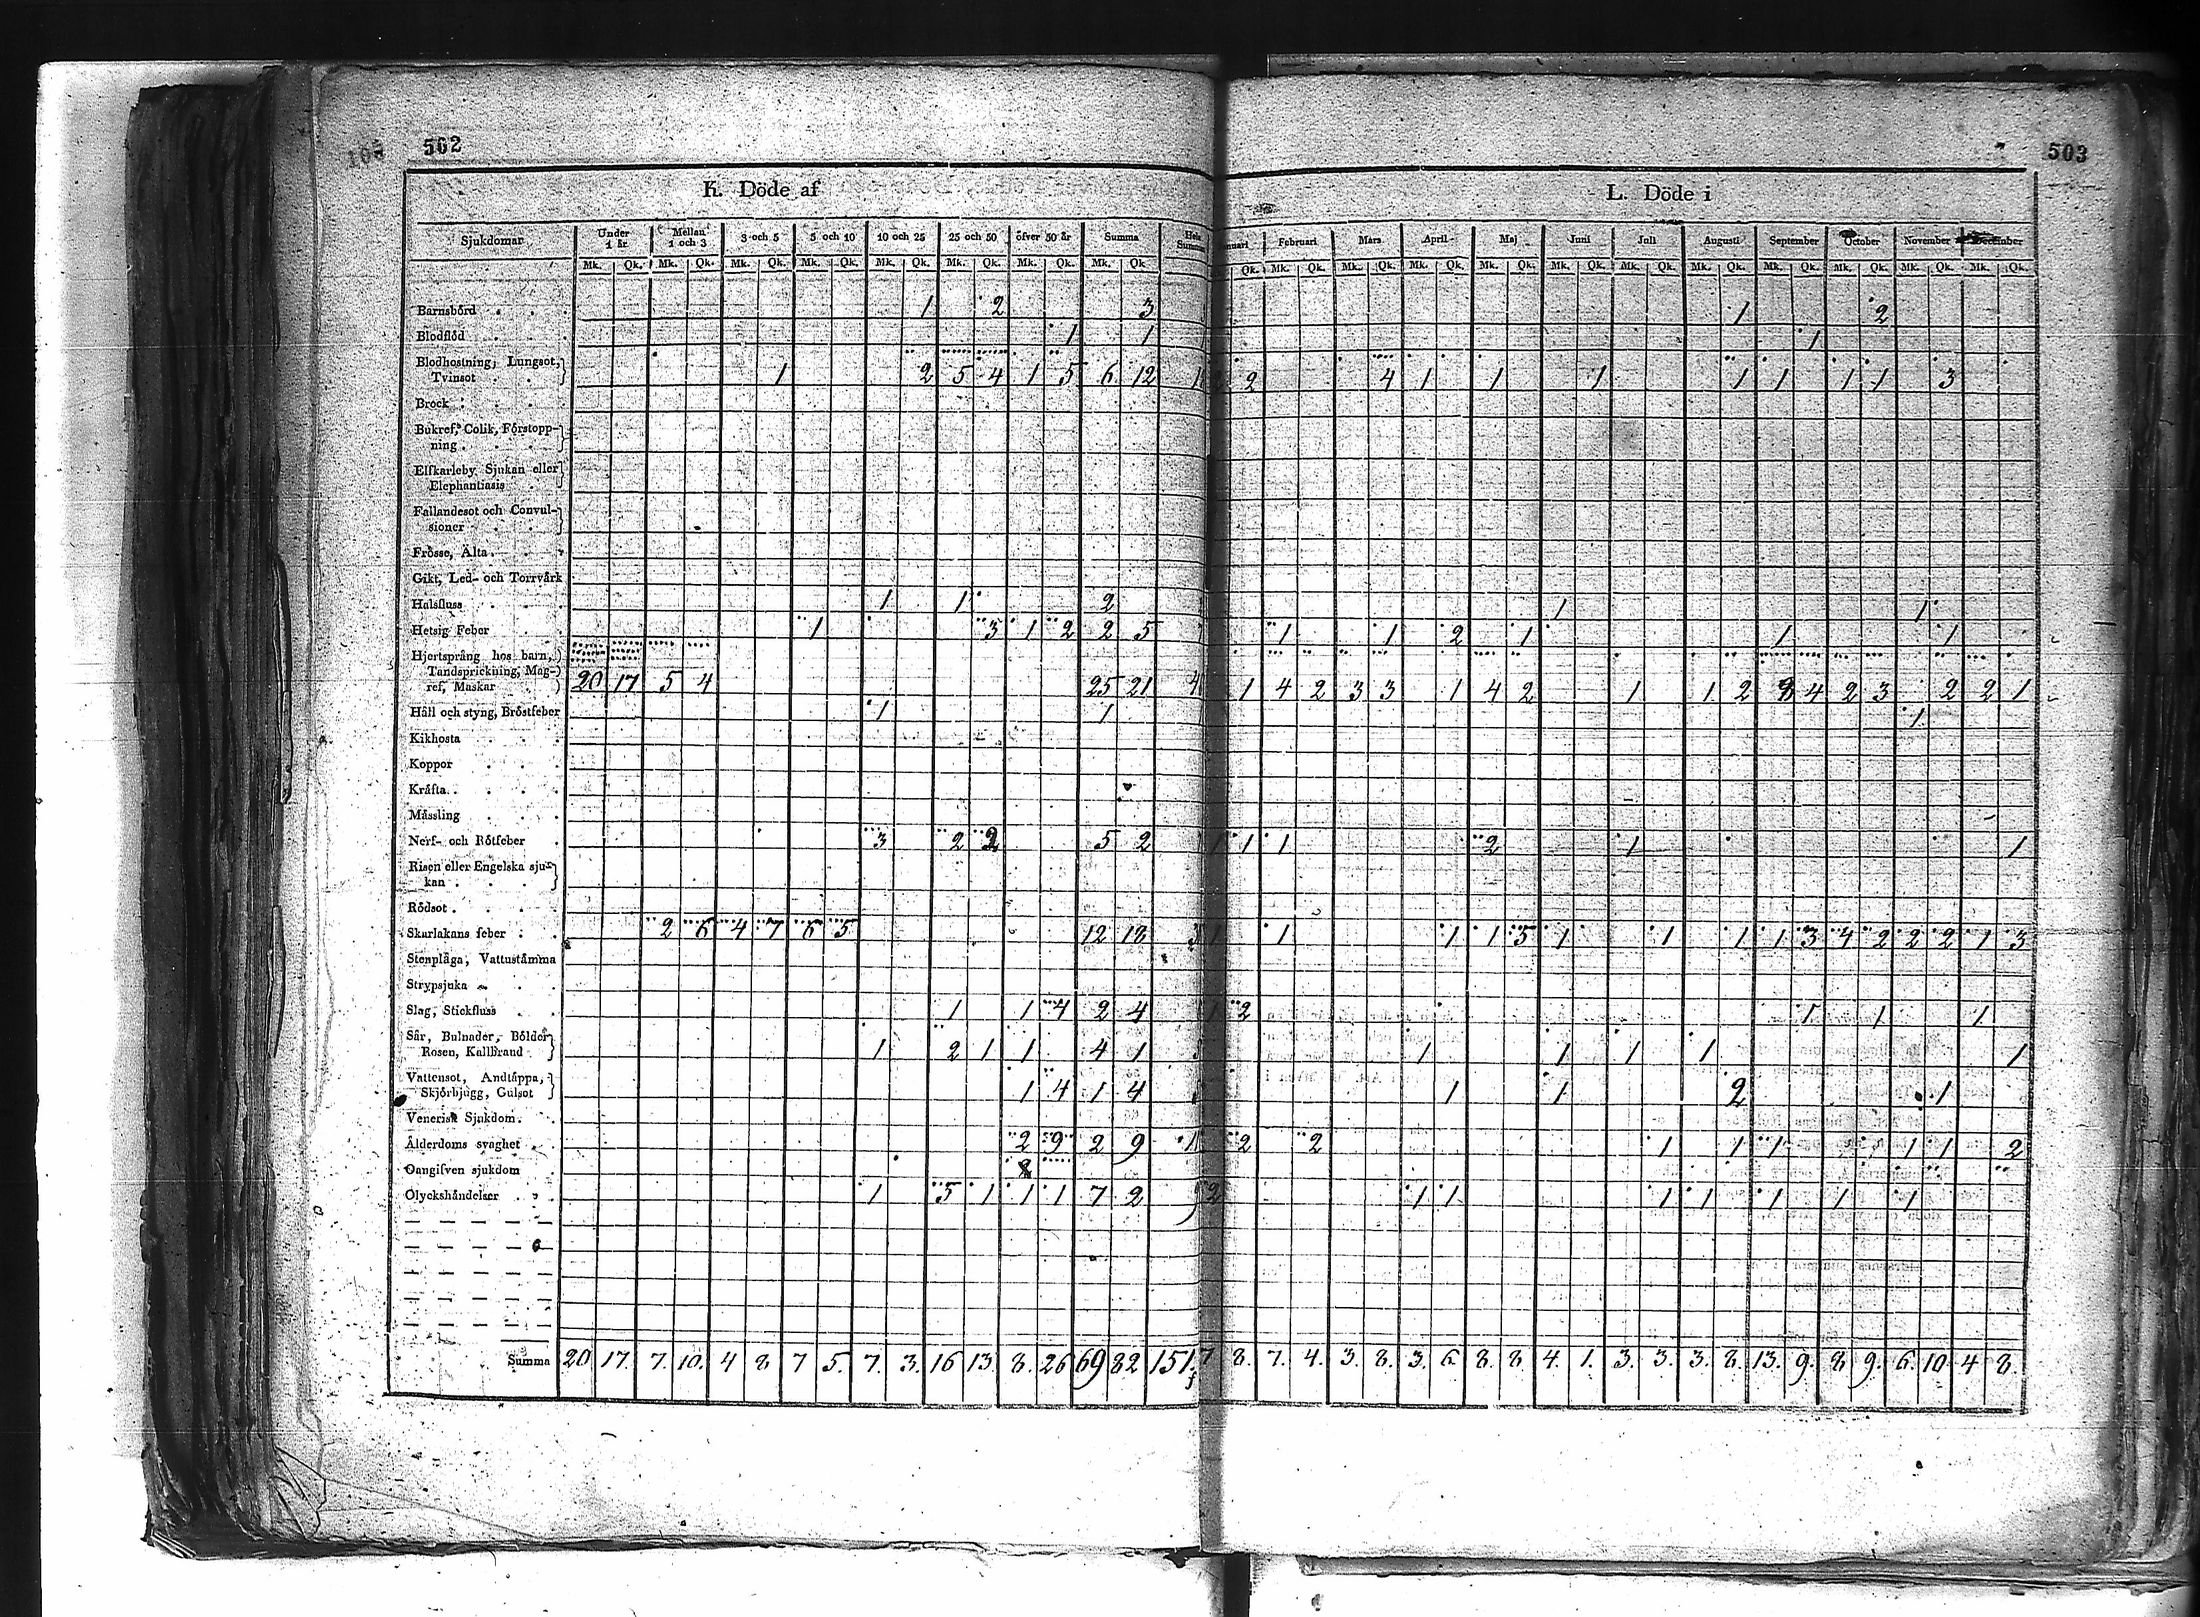 562
503
K. Döde af
L. Döde i
Sjukdomar Under 1 år Mellan 1 och 3 3 och 5 5 och 10 10 och 25 25 och 50 öfver 50 år Summa Hela Summa
Februari Mars April Maj Juni Juli Augusti September October November December
Mk. Qk. Mk. Qk. Mk. Qk. Mk. Qk. Mk. Qk. Mk. Qk. Mk. Qk. Mk. Qk.
Qk. Mk. Qk. Mk. Qk. Mk. Qk. Mk. Qk. Mk. Qk. Mk. Qk. Mk. Qk. Mk. Qk. Mk. Qk. Mk. Qk. Mk. Qk.
Barnsbörd 1 2 3 1 2
Blodflöd 1 1 1
Blodhostning, Lungsot,
Tvinsot 1 2 5 4 1 5 6 12 2 4 1 1 1 1 1 1 1 3
Brock
Bukref, Colik, Förstopp-
ning
Elfkarleby Sjukan eller
Elephantiasis
Fallandesot och Convul-
sioner
Frossa, Älta
Gikt, Led- och Torrvärk
Halsfluss 1 1 2 1 1
Hetsig Feber 1 3 1 2 2 5 1 1 2 1 1 1
Hjertsprång hos barn,
Tandsprickning, Mag-
ref, Maskar 20 17 5 4 25 21 1 4 2 3 3 1 4 2 1 1 2 8 4 2 3 2 2 1
Håll och styng, Bröstfeber 1 1 1
Kikhosta
Koppor
Kräfta
Mässling
Nerf- och Rötfeber 3 2 2 5 2 1 1 1 2 1 1
Risen eller Engelska sju-
kan
Rödsot
Skarlakans feber 2 6 4 7 6 5 12 18 1 1 1 1 5 1 1 1 1 3 4 2 2 2 1 3
Stenplåga, Vattustämma
Strypsjuka
Slag, Stickfluss 1 1 4 2 4 1 2 1 1 1
Sår, Bulnader, Bölder
Rosen, Kallbrand 1 2 1 1 4 1 1 1 1 1 1
Vattensot, Andtäppa,
Skjörbjugg, Gulsot 1 4 1 4 1 1 2 1
Venerisk Sjukdom
Ålderdoms svaghet 2 9 2 9 2 2 1 1 1 1 1 2
Oangifven sjukdom
Olyckshändelser 1 5 1 1 1 7 2 2 1 1 1 1 1 1 1
Summa 20 17. 7. 10. 4 8 7 5. 7. 3. 16 13. 8. 26 69 82 151. 7 8. 7. 4. 3. 8. 3. 6. 8. 8. 4. 1. 3. 3. 3. 8. 13. 9. 8 9. 6. 10. 4 8.